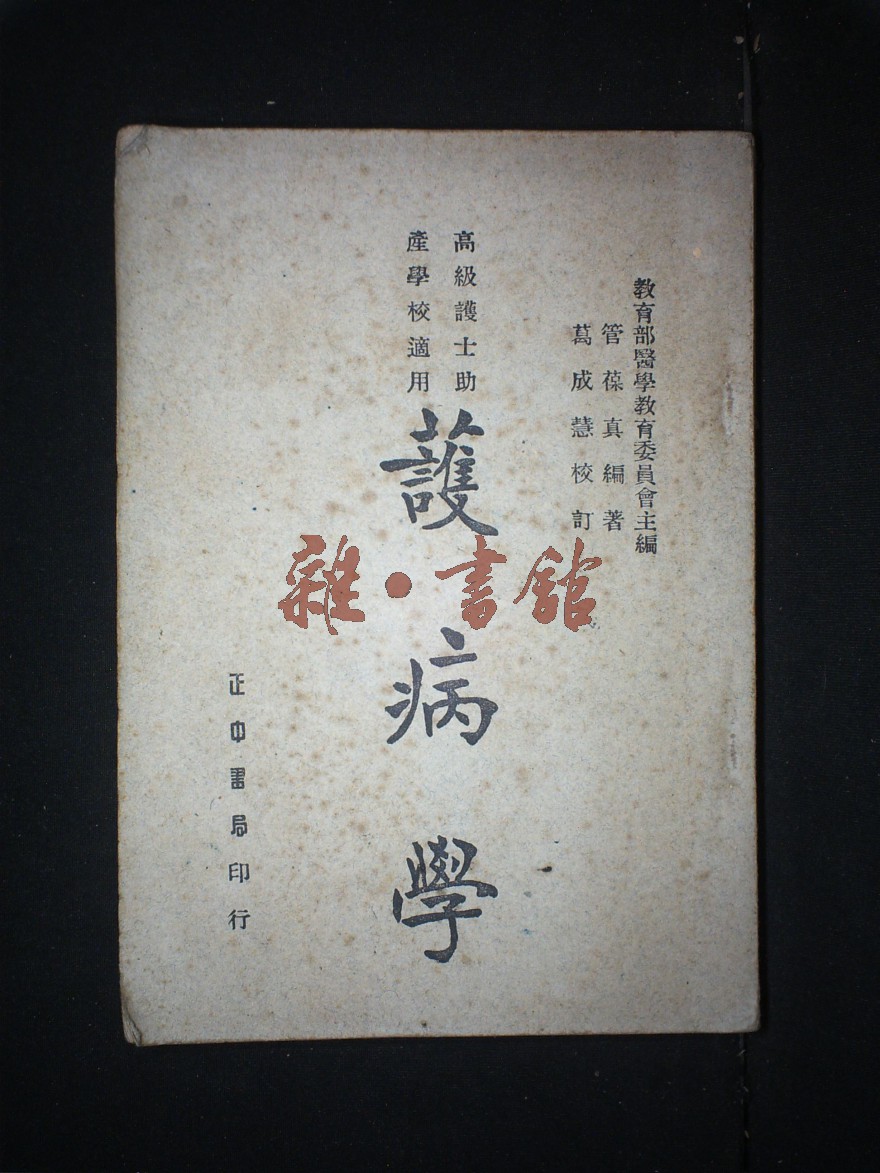 教育部醫學教育委員會主編
管葆真編著
葛成慧校訂
高級護士助
產學校適用
護病學
正中書局印行
雜·書館